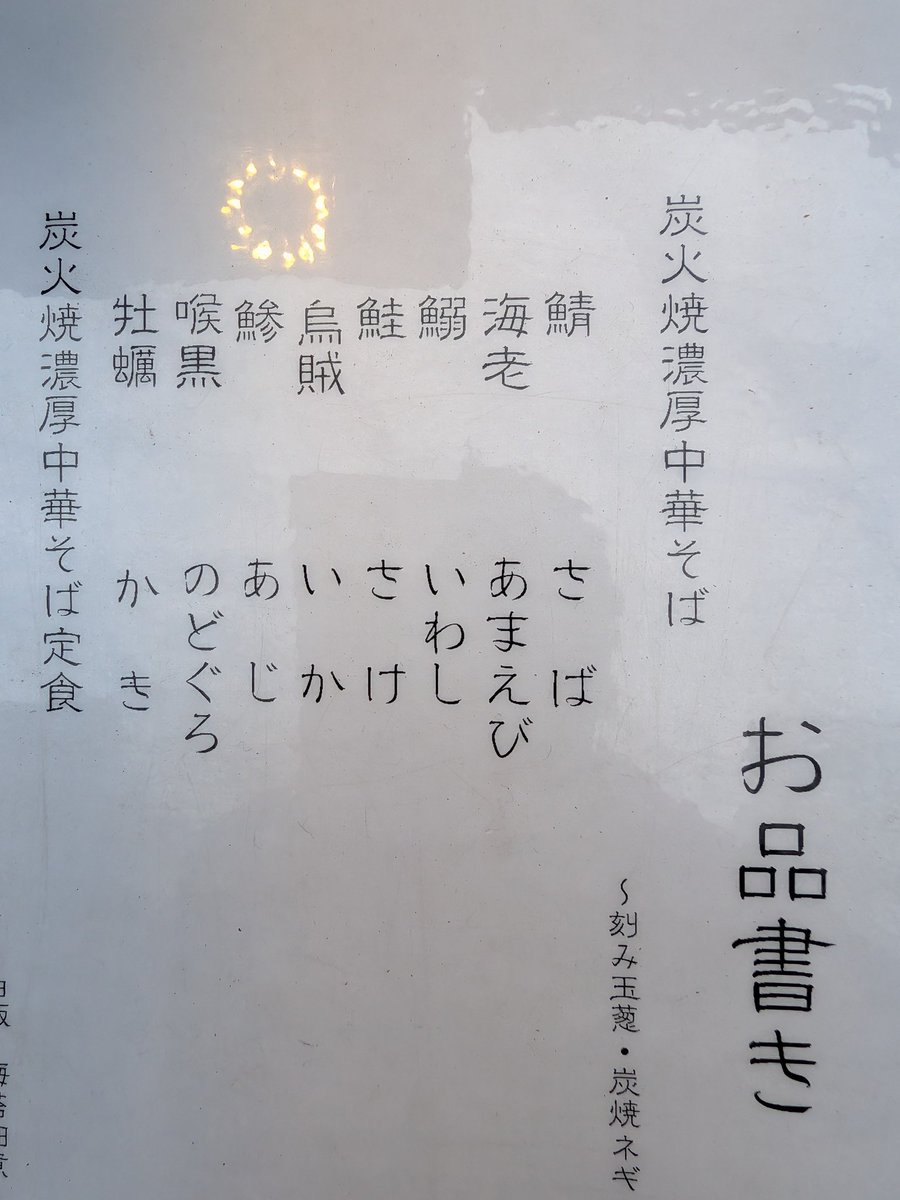 お品書き
炭火焼濃厚中華そば
〜刻み玉葱・炭焼ネギ
鯖 さば
海老 あまえび
鰯 いわし
鮭 さけ
烏賊 いか
鯵 あじ
喉黒 のどぐろ
牡蠣 かき
炭火焼濃厚中華そば定食